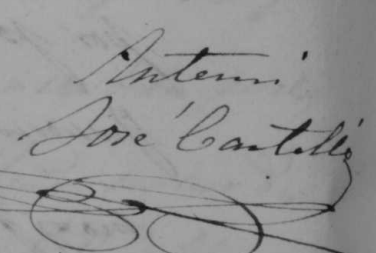 Antemi
José Castillo